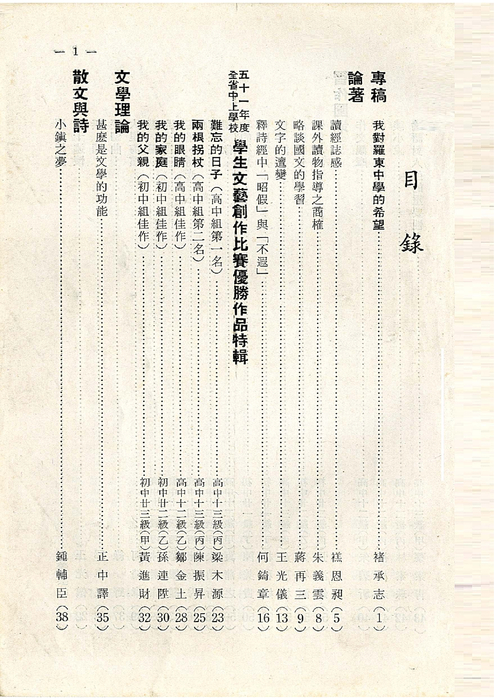 目錄
專稿
我對羅東中學的希望……褚承志(1)
論著
讀經誌感……禚恩昶(5)
課外讀物指導之商榷……朱義雲(8)
略談國文的學習……蔣再三(9)
文字的遞變……王光儀(13)
釋詩經中「昭假」與「不遐」……何錡章(16)
五十一年度全省中上學校學生文藝創作比賽優勝作品特輯
難忘的日子(高中組第一名)……高中十三級(丙)梁木源(23)
兩根拐杖(高中組第二名)……高中十三級(丙)陳振昇(25)
我的眼睛(高中組佳作)……高中十二級(乙)鄒金土(28)
我的家庭(初中組佳作)……初中廿二級(乙)孫連陞(30)
我的父親(初中組佳作)……初中廿三級(甲)黃進財(32)
文學理論
甚麼是文學的功能……正中譯(35)
散文與詩
小鎮之夢……鍾輔臣(38)
— 1 —